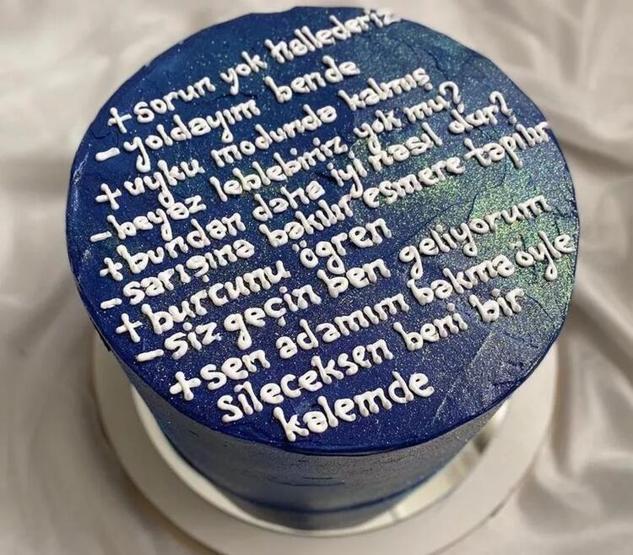 + sorun yok hallederiz
- yoldayım bende
+ uyku modunda kalmış
- beyaz leblebimiz yok mu?
+ bundan daha iyi nasıl olur?
- sarışına bakılır esmere tapılır
+ burcunu öğren
- siz geçin ben geliyorum
+ sen adamım bakma öyle
sileceksen beni bir
kalemde